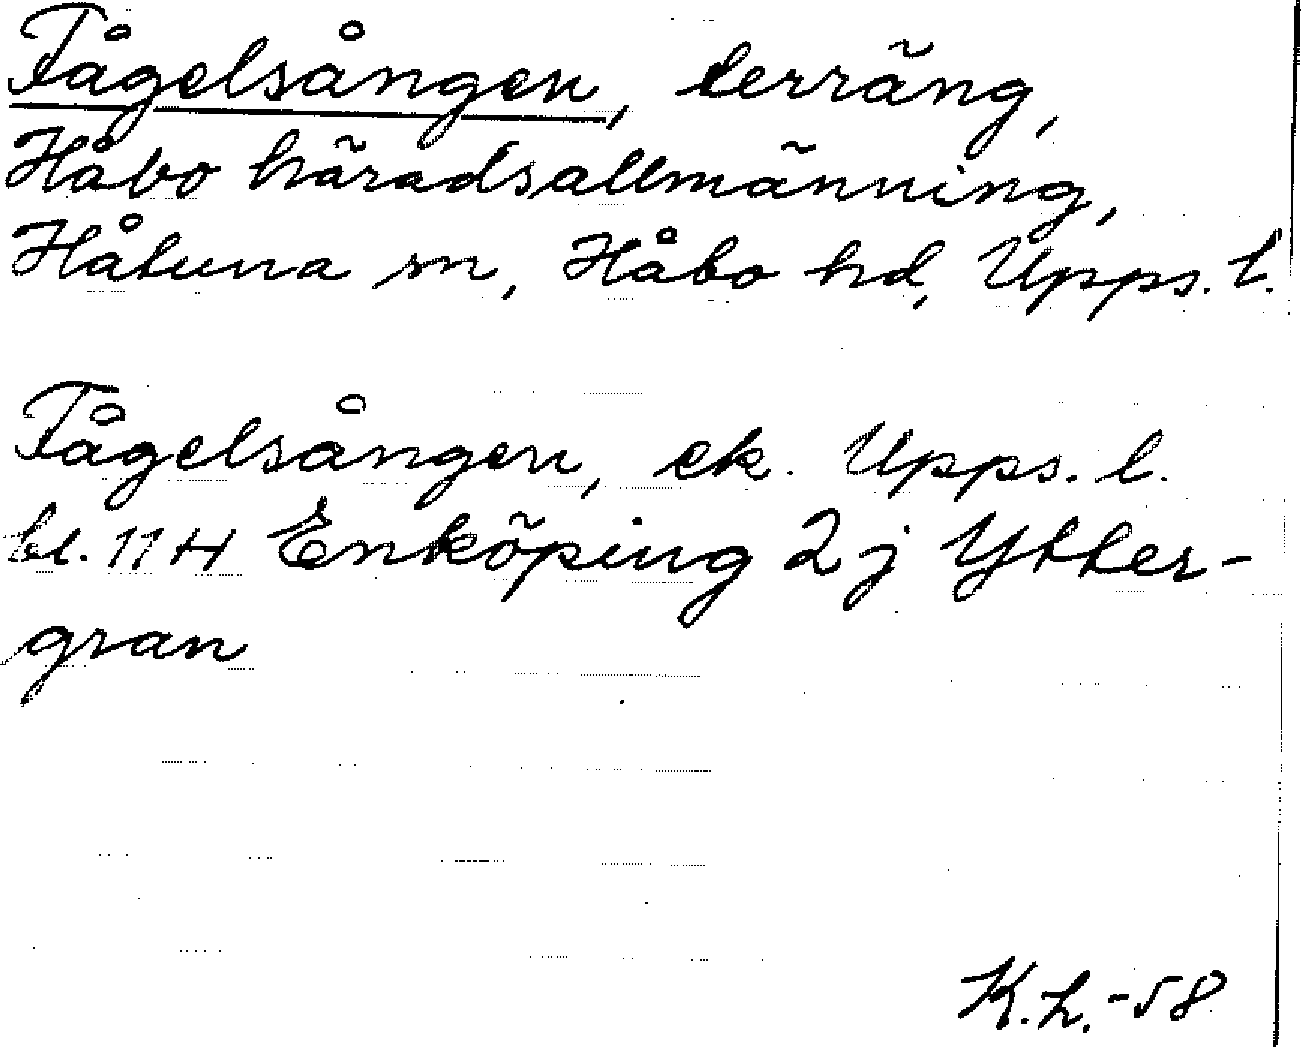 Fågelsången, terräng,
Håbo häradsallmänning,
Håtuna sn, Håbo hd, Upps. l.
Fågelsången, ek. Upps. l.
bl. 11 H Enköping 2 j Ytter-
gran
K.L. -58